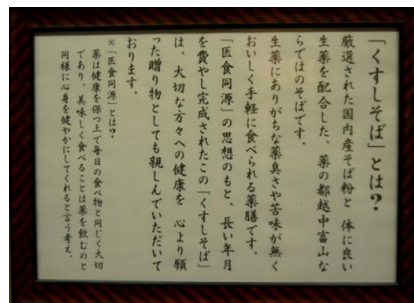 「くすしそば」とは？
厳選された国内産そば粉と 体に良い
生薬を配合した、薬の都越中富山な
らではのそばです。
生薬にありがちな薬臭さや苦味が無く
おいしく手軽に食べられる薬膳です。
「医食同源」の思想のもと、長い年月
を費やし完成されたこの「くすしそば」
は、大切な方々への健康を 心より願
った贈り物としても親しんでいただいて
おります。
※「医食同源」とは？
薬は健康を保つ上で毎日の食べ物と同じく大切
であり、美味しく食べることは薬を飲むのと
同様に心身を健やかにしてくれると言う考え。